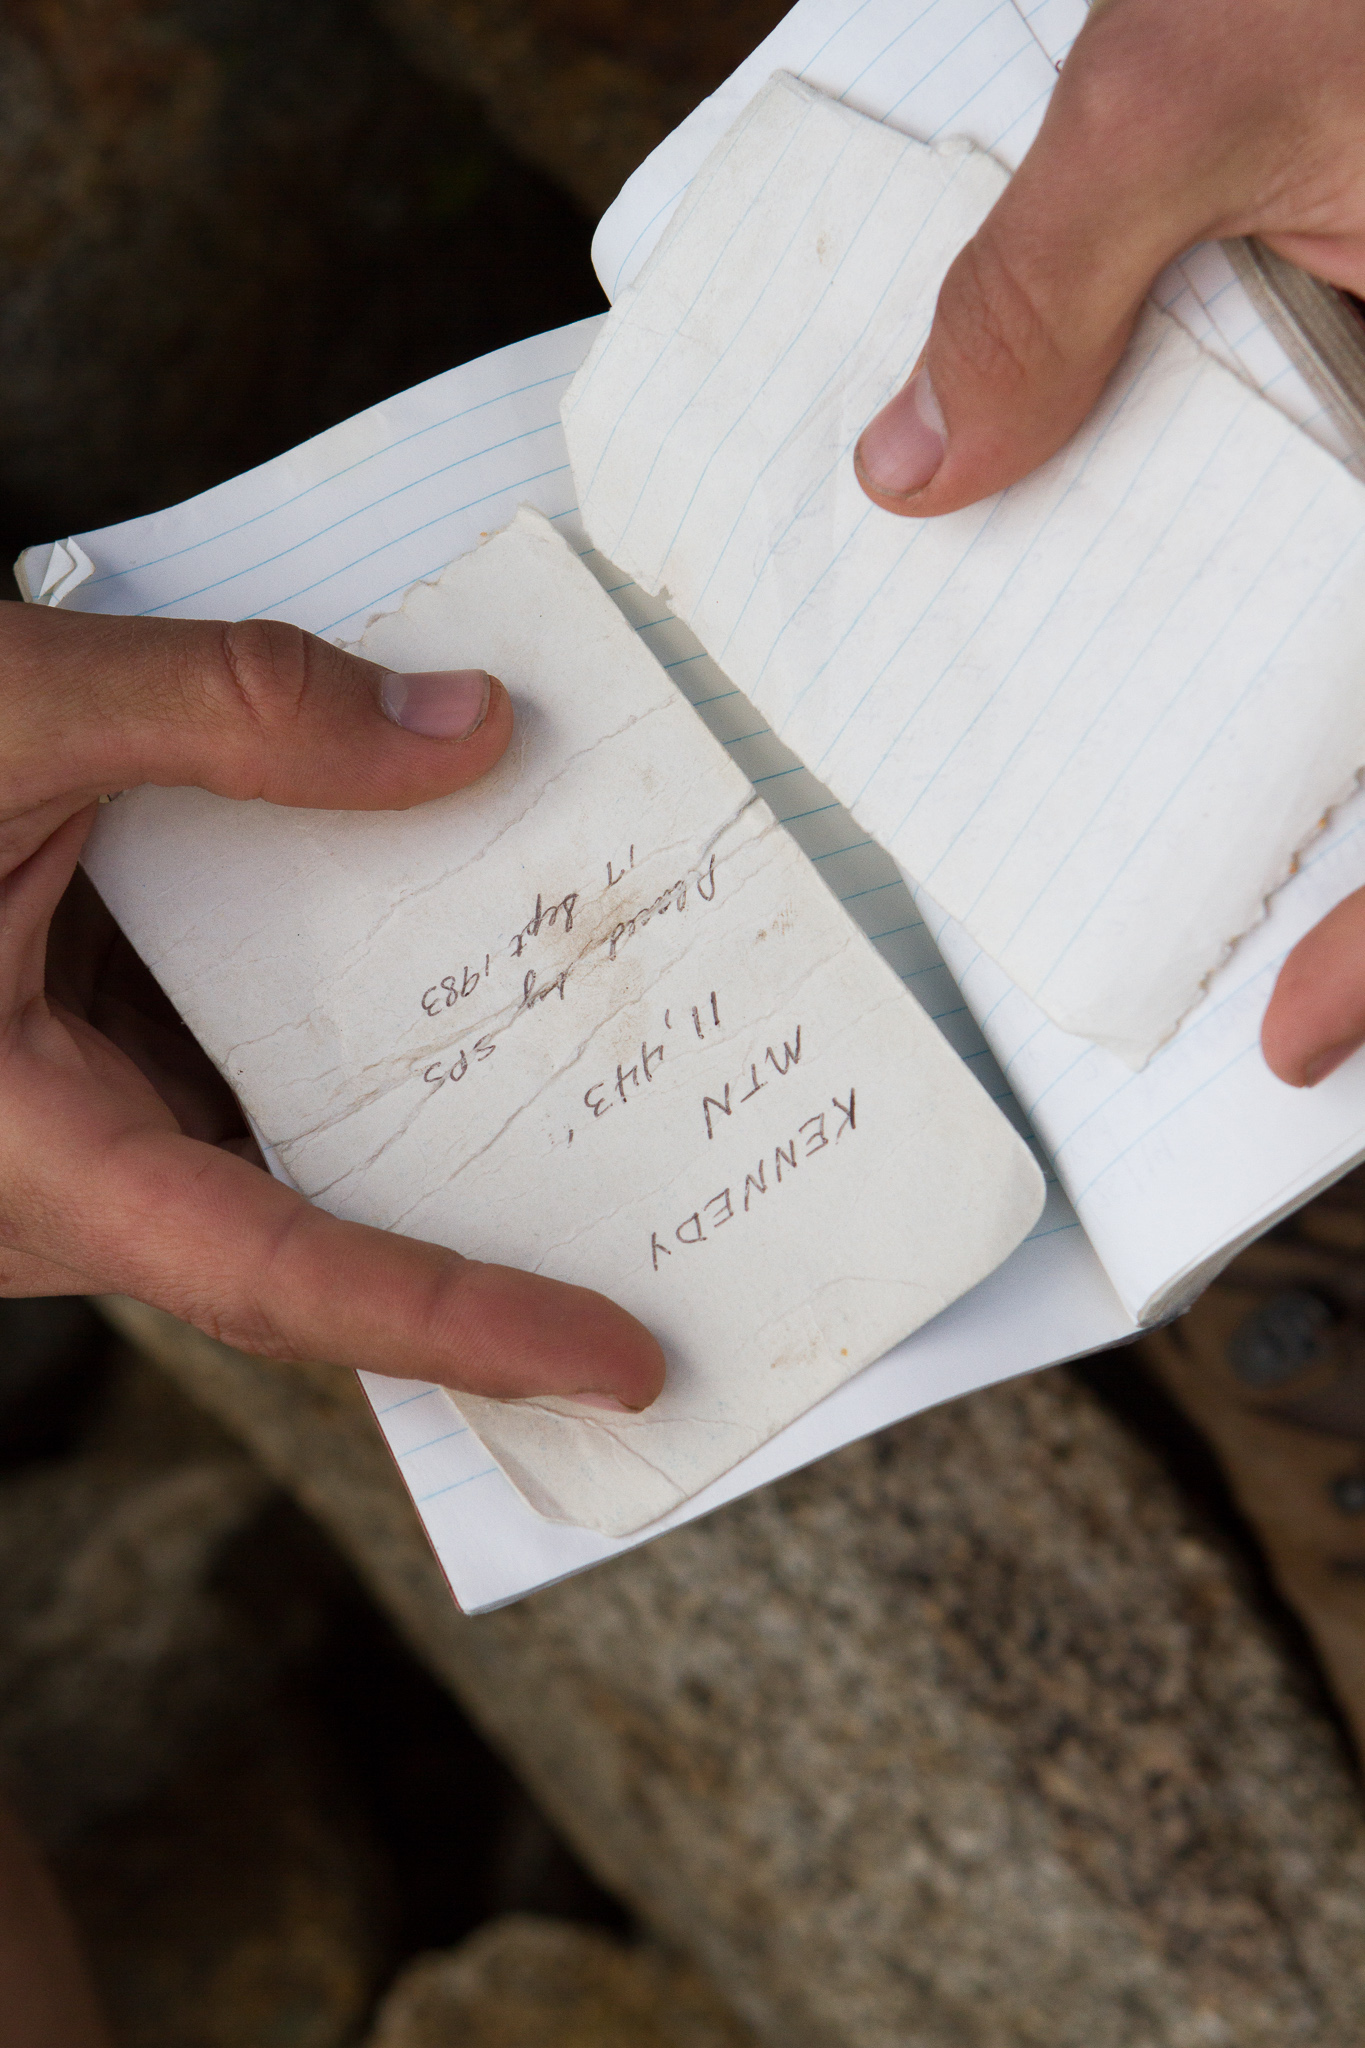 KENNEDY
MTN
11,443'
Placed by SPS
17 Sept 1983